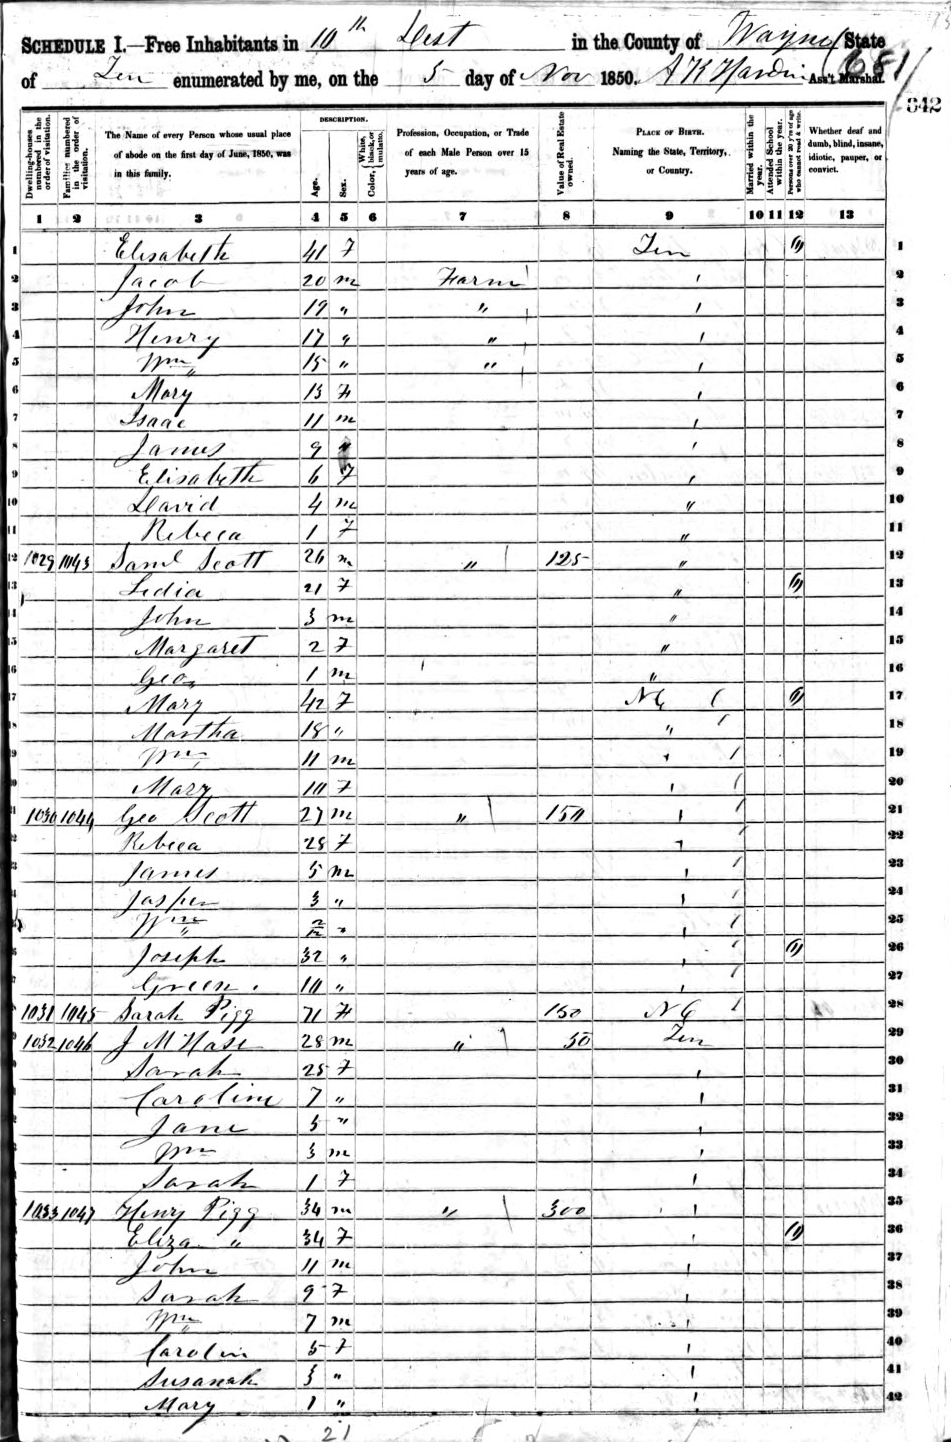 SCHEDULE I.—Free Inhabitants in 10th Dist in the County of Wayne State
of Ten enumerated by me, on the 5 day of Nov 1850. A K Hardin Ass't Marshal.
681
342
Dwelling-houses numbered in the order of visitation.
Families numbered in the order of visitation.
The Name of every Person whose usual place of abode on the first day of June, 1850, was in this family.
DESCRIPTION.
Age.
Sex.
Color, White, black, or mulatto.
Profession, Occupation, or Trade of each Male Person over 15 years of age.
Value of Real Estate owned.
PLACE OF BIRTH. Naming the State, Territory, or Country.
Married within the year.
Attended School within the year.
Persons over 20 y'rs of age who cannot read & write.
Whether deaf and dumb, blind, insane, idiotic, pauper, or convict.
1 2 3 4 5 6 7 8 9 10 11 12 13
1 Elisabeth 41 F Ten 1
2 Jacob 20 m Farm 2
3 John 19 " " 3
4 Henry 17 " " 4
5 Wm 15 " " 5
6 Mary 13 F 6
7 Isaac 11 m 7
8 James 9 " 8
9 Elisabeth 6 F 9
10 David 4 m " 10
11 Rebeca 1 F " 11
12 1029 1043 Saml Scott 26 m " 125 " 12
13 Lidia 21 F " 13
14 John 3 m " 14
15 Margaret 2 F " 15
16 Geo 1 m " 16
17 Mary 42 F NC 17
18 Martha 18 " " 18
19 Wm 11 m 19
20 Mary 10 F 20
21 1030 1044 Geo Scott 27 m " 150 21
22 Rebeca 28 F 22
23 James 5 m 23
24 Jasper 3 " 24
25 Wm 2/12 " 25
26 Joseph 32 " 26
27 Green 10 " 27
28 1031 1045 Sarah Pigg 71 F 150 NC 28
29 1032 1046 J M Hase 28 m " 50 Ten 29
30 Sarah 25 F 30
31 Caroline 7 " 31
32 Jane 5 " 32
33 Wm 3 m 33
34 Sarah 1 F 34
35 1033 1047 Henry Pigg 34 m " 300 35
36 Eliza " 34 F 36
37 John 11 m 37
38 Sarah 9 F 38
39 Wm 7 m 39
40 Carolin 5 F 40
41 Susanah 3 " 41
42 Mary 1 " 42
21